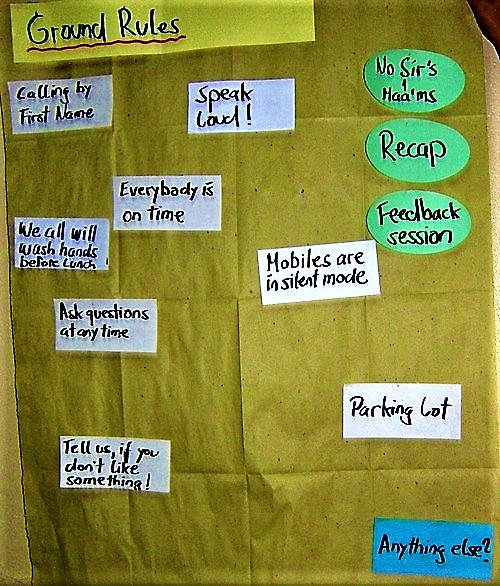 Ground Rules
Calling by
First Name
Speak
Loud!
No Sir's
&
Maa'ms
Recap
Everybody is
on time
Feedback
session
We all will
wash hands
before Lunch!
Mobiles are
in silent mode
Ask questions
at any time
Parking Lot
Tell us, if you
don't like
something!
Anything else?